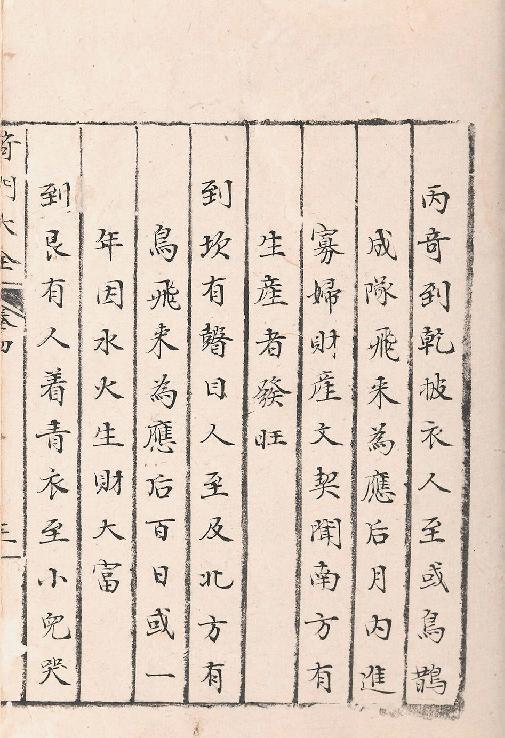 丙奇到乾披衣人至或鳥鵲
成隊飛来為應后月内進
寡婦財産文契聞南方有
生産者發旺
到坎有瞽目人至及北方有
鳥飛来為應后百日或一
年因水火生財大富
到艮有人着青衣至小兒哭
奇門大全